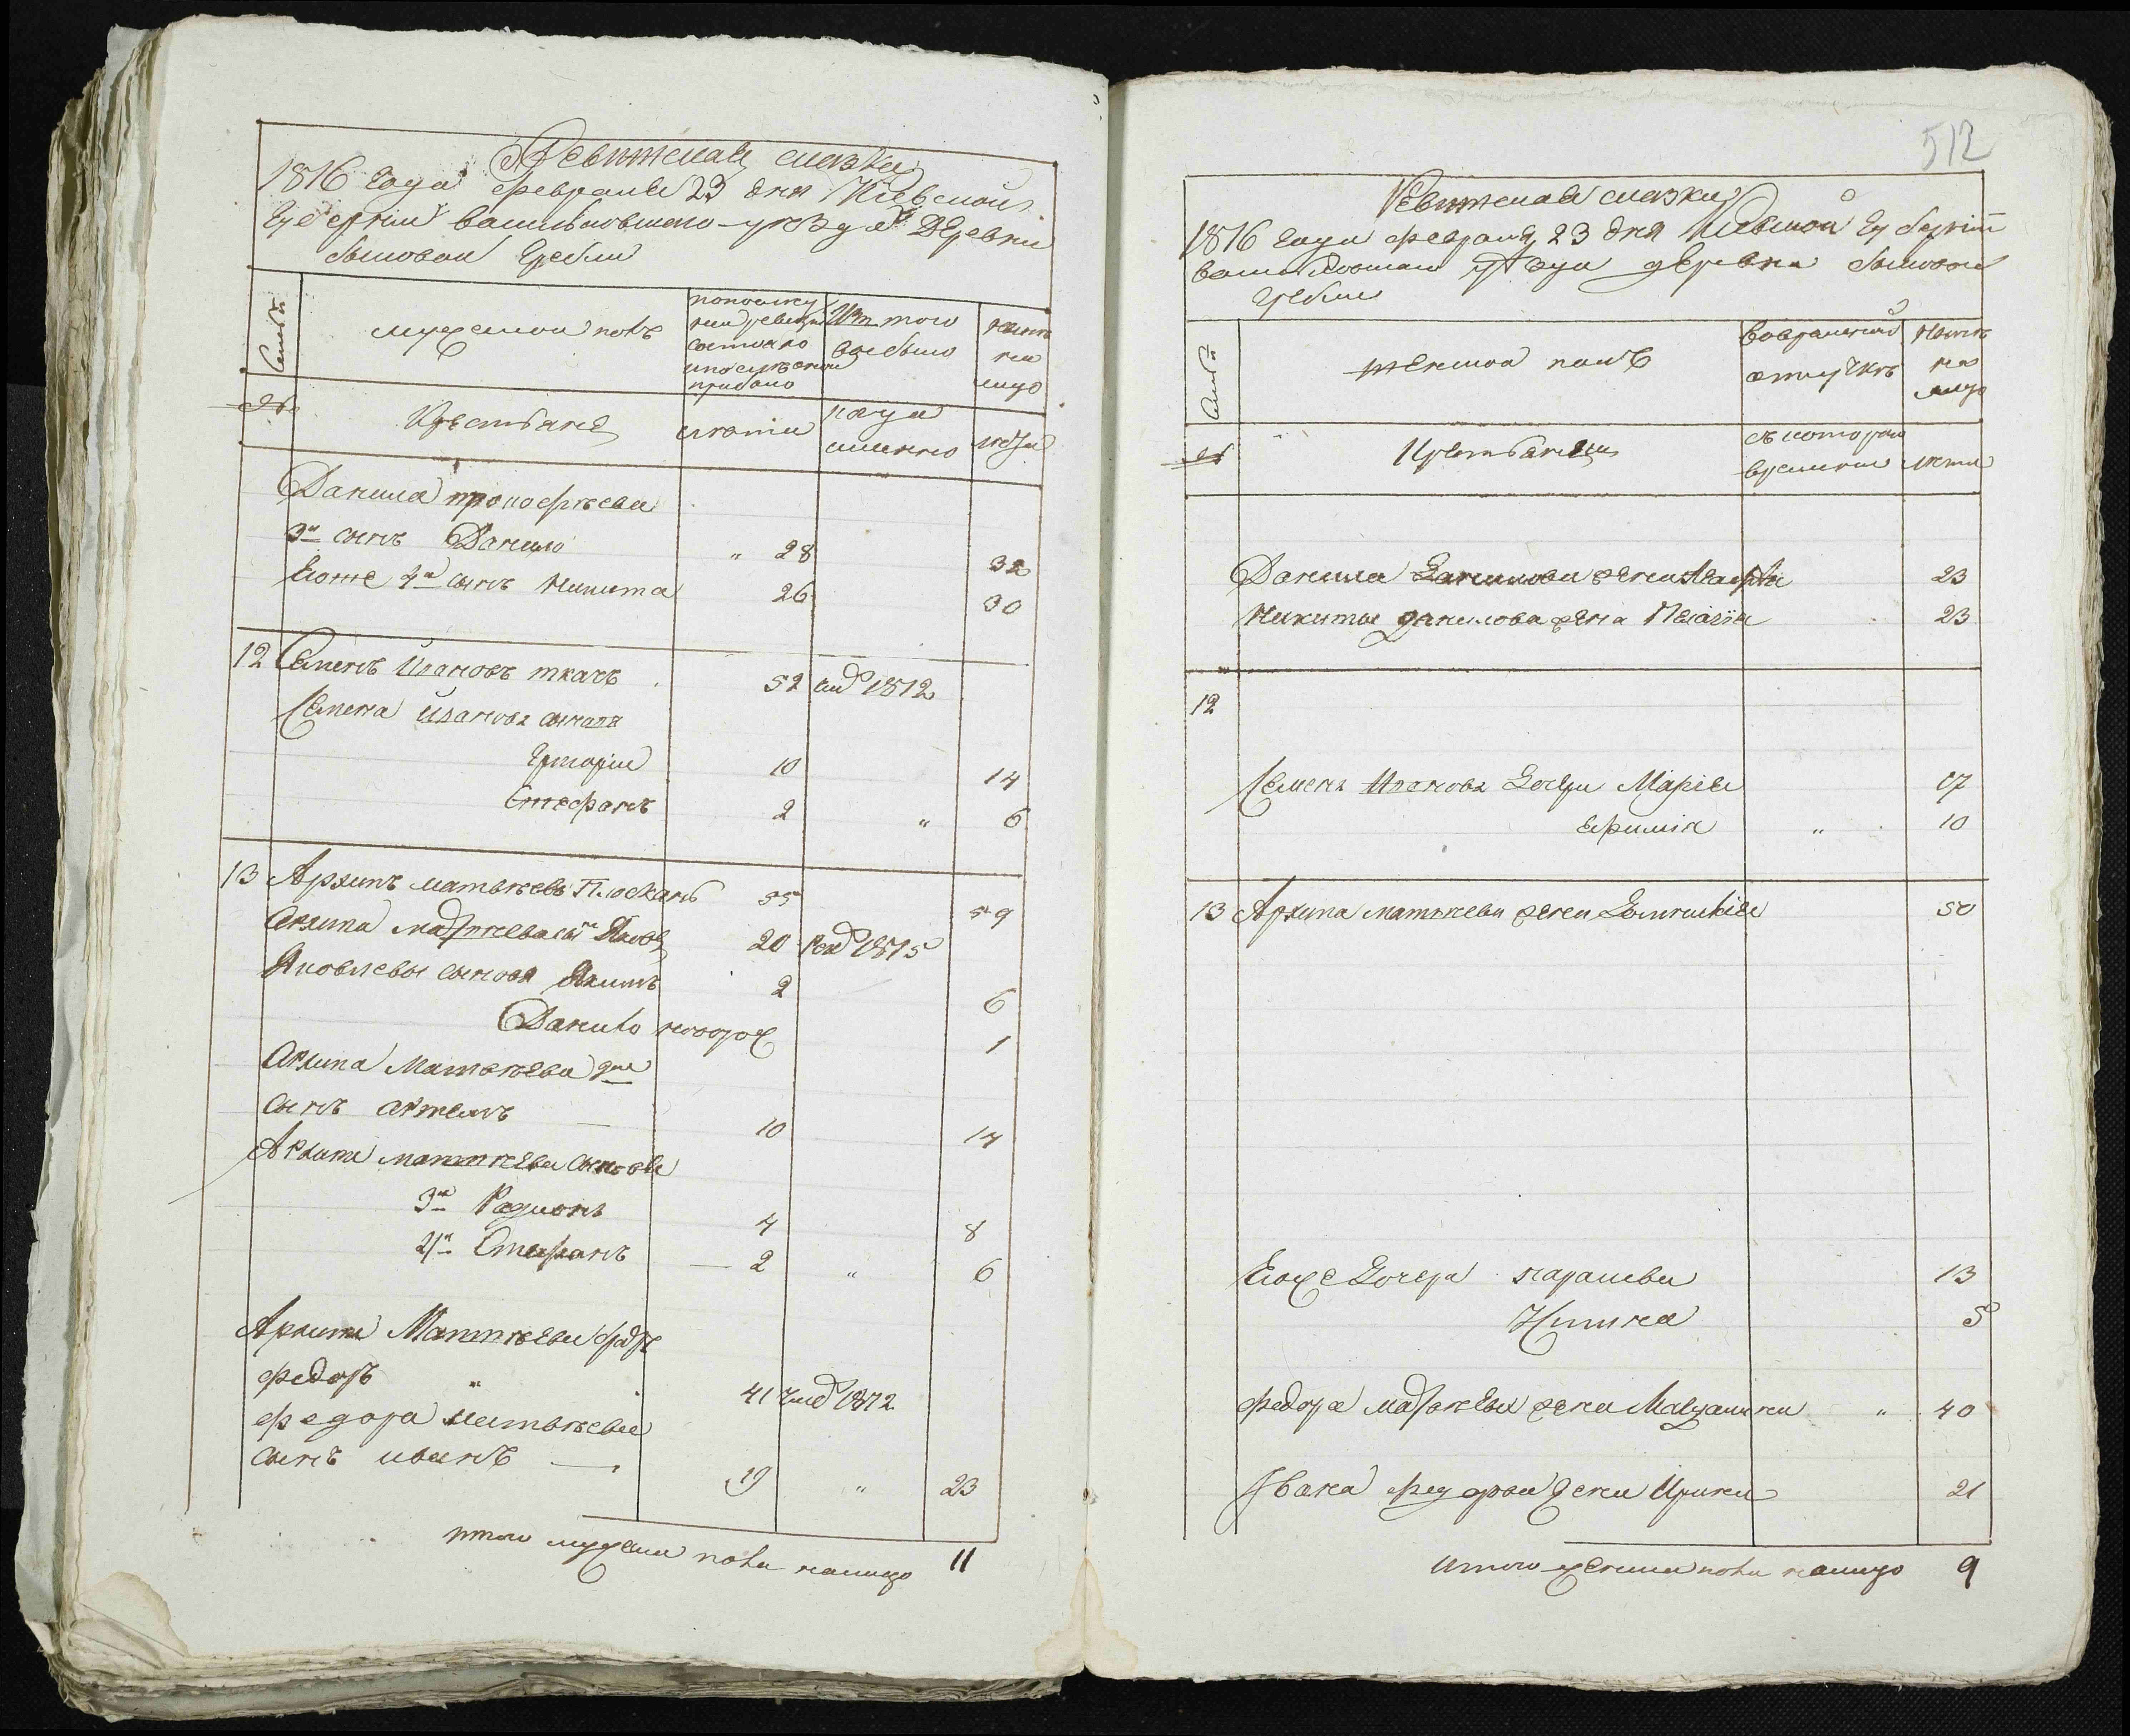 Ревижская сказка
1816 года февраля 23 дня Киевской
Губернии васильковскаго уезда Деревни
Гребли
Семьи
мужеской полъ
по последней ревизии состояло и после оной прибыло
Изъ того выбыло
Ныне на лицо
№
Крестьяне
лета
когда именно
лета
Данила прокофьева
3й сынъ Данило " 28 32
Егоже 4й сынъ Никита 26 30
12 Семенъ Ивановъ ткачъ 52 1812
Семена Иванова сыновя
Григорий 10 14
Стефанъ 2 " 6
13 Архипъ матвеевъ 55 59
Архипа матвеева сынъ Яковъ 20 1815
Яковлевы сыновя Якимъ 2 6
Данило новорож 1
Архипа Матвеева 2й
сынъ артемъ 10 14
Архипа матвеева сыновя
3й Радионъ 4 8
4й Стефанъ 2 " 6
Архипа Матвеева братъ
федоръ " 41 1812
федора матвеева
сынъ иванъ 19 " 23
итого мужеска пола налицо 11
512
Ревижская сказка
1816 года февраля 23 дня Киевской Губернии
васильковскаго уезда деревни
гребли
Семьи
женской полъ
во временной отлучке
Ныне на лицо
№
Крестьянки
съ котораго времени
лета
Данила Данилова жена Марфа 23
Никиты данилова жена Пелагия 23
12
Семена Иванова Дочери Мария 17
Ефимия 10
13 Архипа матвеева жена 50
Егоже Дочери параскева 13
5
федора матвеева жена 40
Ивана федорова жена Ирина 21
итого женска пола налицо 9